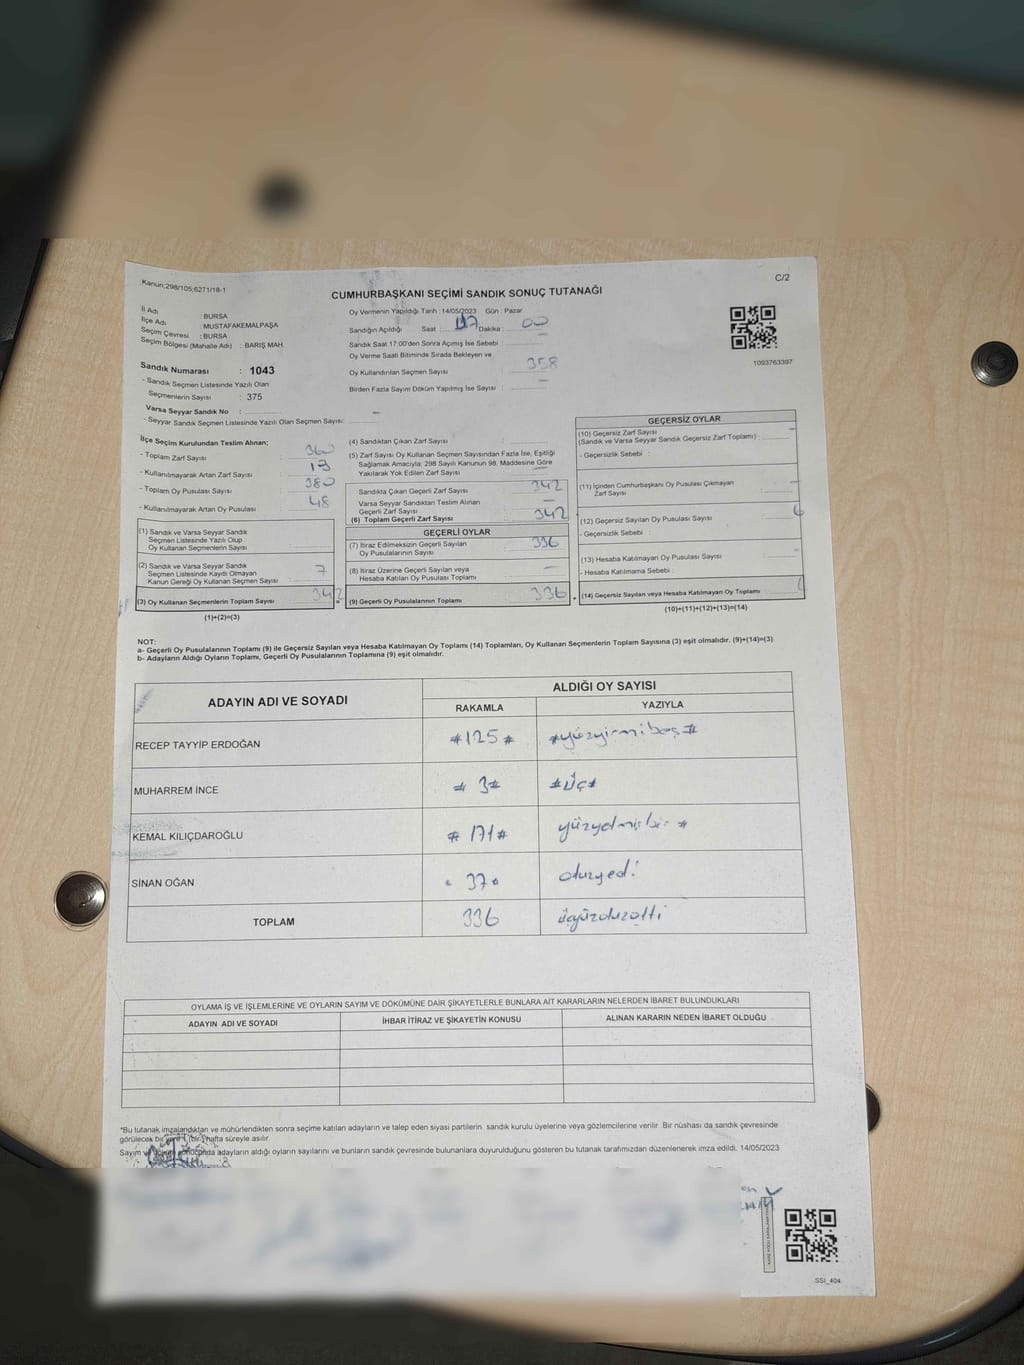 Kanun;298/105;6271/18-1
C/2
CUMHURBAŞKANI SEÇİMİ SANDIK SONUÇ TUTANAĞI
İl Adı : BURSA
İlçe Adı : MUSTAFAKEMALPAŞA
Seçim Çevresi : BURSA
Seçim Bölgesi (Mahalle Adı) : BARIŞ MAH.
Sandık Numarası : 1043
- Sandık Seçmen Listesinde Yazılı Olan
Seçmenlerin Sayısı : 375
Varsa Seyyar Sandık No : –
- Seyyar Sandık Seçmen Listesinde Yazılı Olan Seçmen Sayısı:
Oy Vermenin Yapıldığı Tarih :14/05/2023 Gün : Pazar
Sandığın Açıldığı Saat : 17 Dakika : 00
Sandık Saat 17:00'den Sonra Açımış İse Sebebi : –
Oy Verme Saati Bitiminde Sırada Bekleyen ve
Oy Kullandırılan Seçmen Sayısı 358
Birden Fazla Sayım Döküm Yapılmış İse Sayısı : –
1093763397
İlçe Seçim Kurulundan Teslim Alınan;
- Toplam Zarf Sayısı 360
- Kullanılmayarak Artan Zarf Sayısı 13
- Toplam Oy Pusulası Sayısı 380
- Kullanılmayarak Artan Oy Pusulası 48
(1) Sandık ve Varsa Seyyar Sandık
Seçmen Listesinde Yazılı Olup
Oy Kullanan Seçmenlerin Sayısı
(2) Sandık ve Varsa Seyyar Sandık
Seçmen Listesinde Kayıtlı Olmayan
Kanun Gereği Oy Kullanan Seçmen Sayısı 7
(3) Oy Kullanan Seçmenlerin Toplam Sayısı 342
(1)+(2)=(3)
(4) Sandıktan Çıkan Zarf Sayısı :
(5) Zarf Sayısı Oy Kullanan Seçmen Sayısından Fazla İse, Eşitliği
Sağlamak Amacıyla; 298 Sayılı Kanunun 98. Maddesine Göre
Yakılarak Yok Edilen Zarf Sayısı –
Sandıkta Çıkan Geçerli Zarf Sayısı 342
Varsa Seyyar Sandıktan Teslim Alınan
Geçerli Zarf Sayısı –
(6) Toplam Geçerli Zarf Sayısı 342
GEÇERLİ OYLAR
(7) İtiraz Edilmeksizin Geçerli Sayılan
Oy Pusulalarının Sayısı : 336
(8) İtiraz Üzerine Geçerli Sayılan veya
Hesaba Katılan Oy Pusulası Toplamı –
(9) Geçerli Oy Pusulalarının Toplamı 336
GEÇERSİZ OYLAR
(10) Geçersiz Zarf Sayısı
(Sandık ve Varsa Seyyar Sandık Geçersiz Zarf Toplamı) : –
- Geçersizlik Sebebi :
(11) İçinden Cumhurbaşkanı Oy Pusulası Çıkmayan
Zarf Sayısı –
(12) Geçersiz Sayılan Oy Pusulası Sayısı 6
- Geçersizlik Sebebi :
(13) Hesaba Katılmayan Oy Pusulası Sayısı –
- Hesaba Katılmama Sebebi :
(14) Geçersiz Sayılan veya Hesaba Katılmayan Oy Toplamı
(10)+(11)+(12)+(13)=(14)
NOT:
a- Geçerli Oy Pusulalarının Toplamı (9) ile Geçersiz Sayılan veya Hesaba Katılmayan Oy Toplamı (14) Toplamları, Oy Kullanan Seçmenlerin Toplam Sayısına (3) eşit olmalıdır. (9)+(14)=(3)
b- Adayların Aldığı Oyların Toplamı, Geçerli Oy Pusulalarının Toplamına (9) eşit olmalıdır.
ADAYIN ADI VE SOYADI
ALDIĞI OY SAYISI
RAKAMLA YAZIYLA
RECEP TAYYİP ERDOĞAN #125# #yüzyirmibeş#
MUHARREM İNCE #3# #Üç#
KEMAL KILIÇDAROĞLU #171# yüzyetmişbir #
SİNAN OĞAN 37 otuzyedi
TOPLAM 336 üçyüzotuzaltı
OYLAMA İŞ VE İŞLEMLERİNE VE OYLARIN SAYIM VE DÖKÜMÜNE DAİR ŞİKAYETLERLE BUNLARA AİT KARARLARIN NELERDEN İBARET BULUNDUKLARI
ADAYIN ADI VE SOYADI İHBAR İTİRAZ VE ŞİKAYETİN KONUSU ALINAN KARARIN NEDEN İBARET OLDUĞU
*Bu tutanak imzalandıktan ve mühürlendikten sonra seçime katılan adayların ve talep eden siyasi partilerin sandık kurulu üyelerine veya gözlemcilerine verilir .Bir nüshası da sandık çevresinde
görülecek bir yere 1 (bir) hafta süreyle asılır
Sayım ve döküm sonucunda adayların aldığı oyların sayılarını ve bunların sandık çevresinde bulunanlara duyurulduğunu gösteren bu tutanak tarafımızdan düzenlenerek imza edildi. 14/05/2023
SSI_404